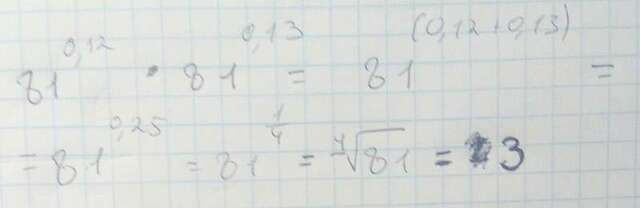 81^0,12 · 81^0,13 = 81^(0,12+0,13) =
= 81^0,25 = 81^1/4 = ⁴√81 = 3